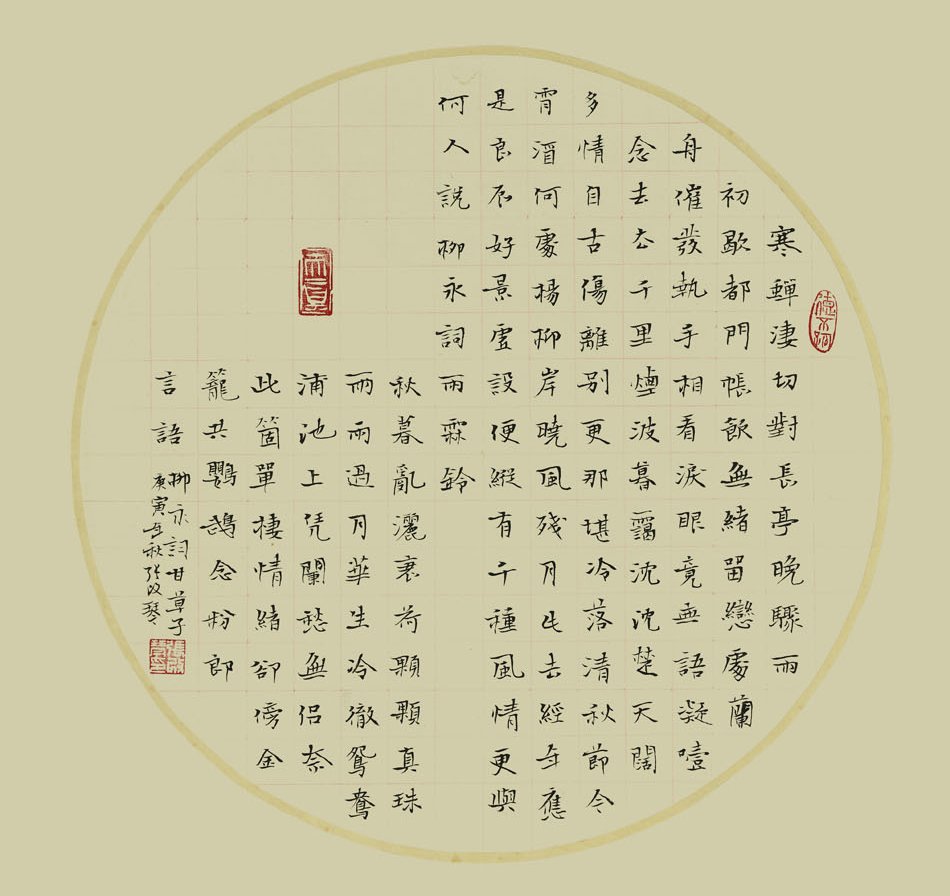 寒蟬淒切對長亭晚驟雨
初歇都門帳飲無緒留戀處蘭
舟催發執手相看淚眼竟無語凝噎
念去去千里煙波暮靄沈沈楚天闊
多情自古傷離別更那堪冷落清秋節今
宵酒何處楊柳岸曉風殘月此去經年應
是良辰好景虛設便縱有千種風情更與
何人說柳永詞雨霖鈴
秋暮亂灑衰荷顆顆真珠
雨雨過月華生冷徹鴛鴦
浦池上凭闌愁無侶奈
此箇單棲情緒卻傍金
籠共鸚鵡念粉郎
言語
柳永詞甘草子
庚寅秋張改琴